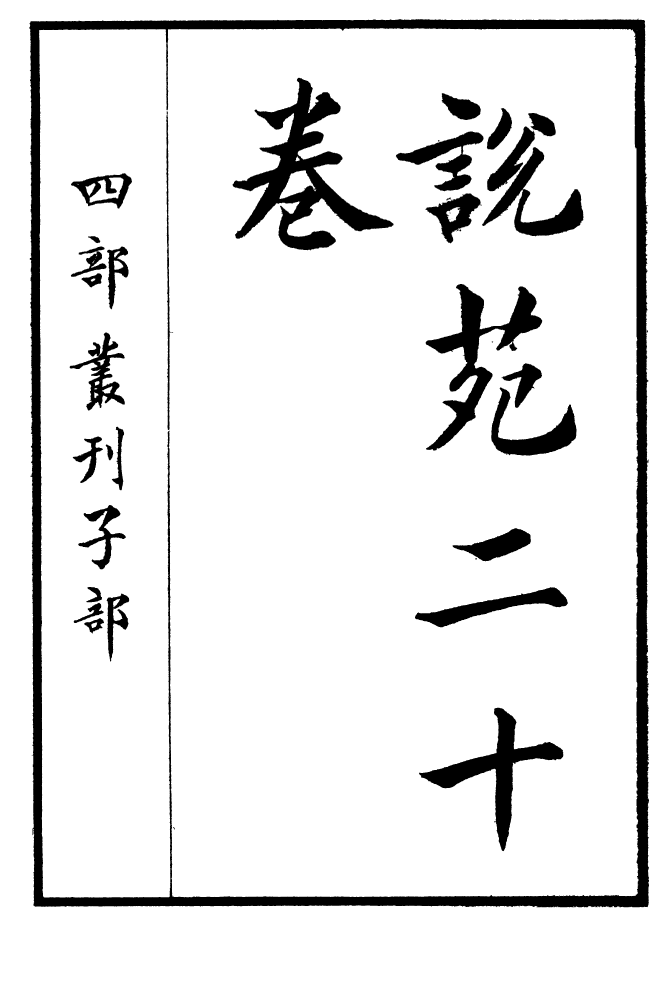 說苑二十
卷
四部叢刊子部